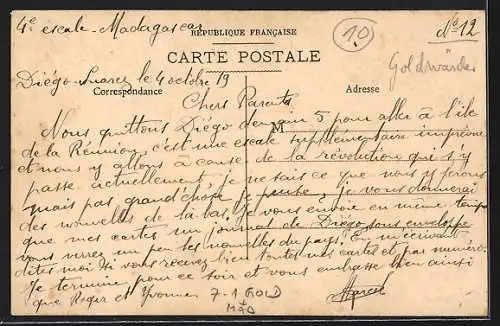 4e escale - Madagascar
RÉPUBLIQUE FRANÇAISE
10
No 12
CARTE POSTALE
Goldwäscher
Diégo-Suarez le 4 octobre 19
Correspondance
Adresse
Chers Parents
M
Nous quittons Diégo demain 5 pour aller à l'île
de la Réunion, c'est une escale supplémentaire imprévue
et nous y allons à cause de la révolution qui s'y
passe actuellement je ne sais ce que nous y ferons
mais pas grand'chose je pense, je vous donnerai
des nouvelles de là-bas. Je vous envoie en même temps
que mes cartes un journal de Diégo sous enveloppe
vous verrez un peu les nouvelles du pays. En m'écrivant
dites moi si vous recevez bien toutes mes cartes et par numéro.
Je termine pour ce soir et vous embrasse bien ainsi
que Roger et Yvonne
Marcel
7-1 GOLD
MAD